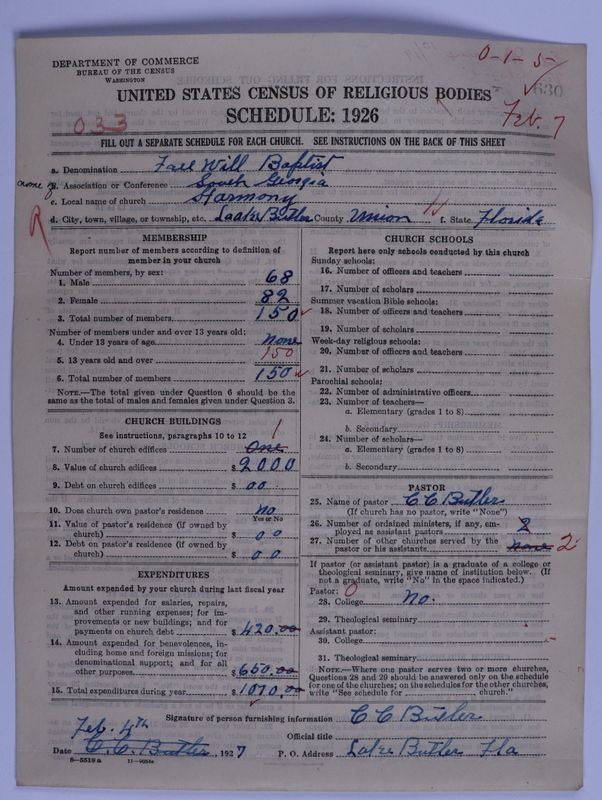 0-1-5
DEPARTMENT OF COMMERCE
BUREAU OF THE CENSUS
WASHINGTON
630
UNITED STATES CENSUS OF RELIGIOUS BODIES
SCHEDULE: 1926
033
Feb. 7
FILL OUT A SEPARATE SCHEDULE FOR EACH CHURCH. SEE INSTRUCTIONS ON THE BACK OF THIS SHEET
a. Denomination Free Will Baptist
none
b. Association or Conference South Georgia
c. Local name of church Harmony
d. City, town, village, or township, etc. Laake Butler County Union f. State Florida
R
MEMBERSHIP
Report number of members according to definition of
member in your church
Number of members, by sex:
1. Male 68
2. Female 82
3. Total number of members 150
Number of members under and over 13 years old:
4. Under 13 years of age None
5. 13 years old and over 150
6. Total number of members 150
NOTE.—The total given under Question 6 should be the
same as the total of males and females given under Question 3.
CHURCH BUILDINGS
See instructions, paragraphs 10 to 12
7. Number of church edifices One 1
8. Value of church edifices $ 2000
9. Debt on church edifices $ 00
10. Does church own pastor's residence no
Yes or No
11. Value of pastor's residence (if owned by
church) $ 00
12. Debt on pastor's residence (if owned by
church) $ 00
EXPENDITURES
Amount expended by your church during last fiscal year
13. Amount expended for salaries, repairs,
and other running expenses; for im-
provements or new buildings; and for
payments on church debt $ 420.00
14. Amount expended for benevolences, in-
cluding home and foreign missions; for
denominational support; and for all
other purposes $ 650.00
15. Total expenditures during year $ 1070.00
CHURCH SCHOOLS
Report here only schools conducted by this church
Sunday schools:
16. Number of officers and teachers
17. Number of scholars
Summer vacation Bible schools:
18. Number of officers and teachers
19. Number of scholars
Week-day religious schools:
20. Number of officers and teachers
21. Number of scholars
Parochial schools:
22. Number of administrative officers
23. Number of teachers—
a. Elementary (grades 1 to 8)
b. Secondary
24. Number of scholars—
a. Elementary (grades 1 to 8)
b. Secondary
PASTOR
25. Name of pastor C C Butler
(If church has no pastor, write "None")
26. Number of ordained ministers, if any, em-
ployed as assistant pastors 2
27. Number of other churches served by the
pastor or his assistants None 2
If pastor (or assistant pastor) is a graduate of a college or
theological seminary, give name of institution below. (If
not a graduate, write "No" in the space indicated.)
Pastor: 0
28. College No.
29. Theological seminary
Assistant pastor:
30. College
31. Theological seminary
NOTE.—Where one pastor serves two or more churches,
Questions 28 and 29 should be answered only on the schedule
for one of the churches; on the schedules for the other churches,
write "See schedule for church."
Signature of person furnishing information C C Butler
Feb. 4th
Official title
Date C. C. Butler, 1927 P. O. Address Lake Butler Fla
8—5519a 11—9054a